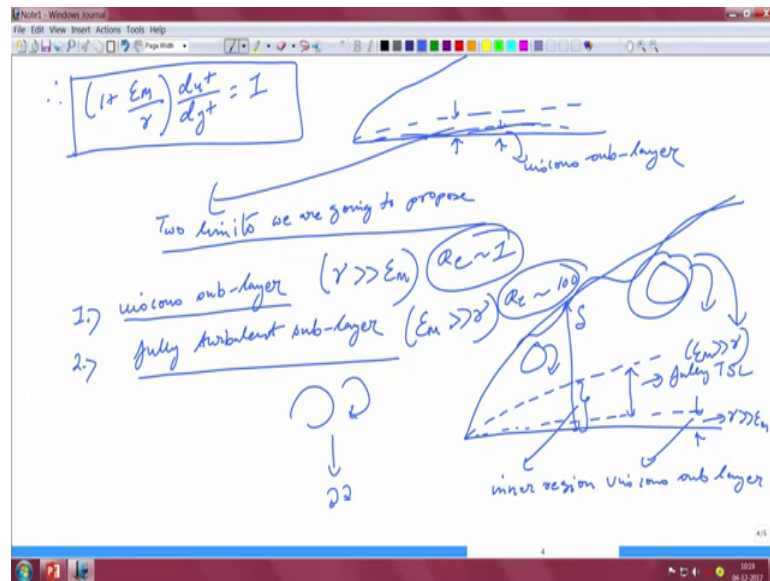 Note1 - Windows Journal
File Edit View Insert Actions Tools Help
Page Width
∴ (1 + εm/γ) du+/dy+ = 1
viscous sub-layer
Two limits we are going to propose
1.) viscous sub-layer (γ >> εm) Re ~ 1
2.) fully turbulent sub-layer (εm >> γ) Re ~ 100
δ
(εm >> γ)
fully TSL
γ >> εm
inner region viscous sub layer
4/5
4
10:19
04-12-2017